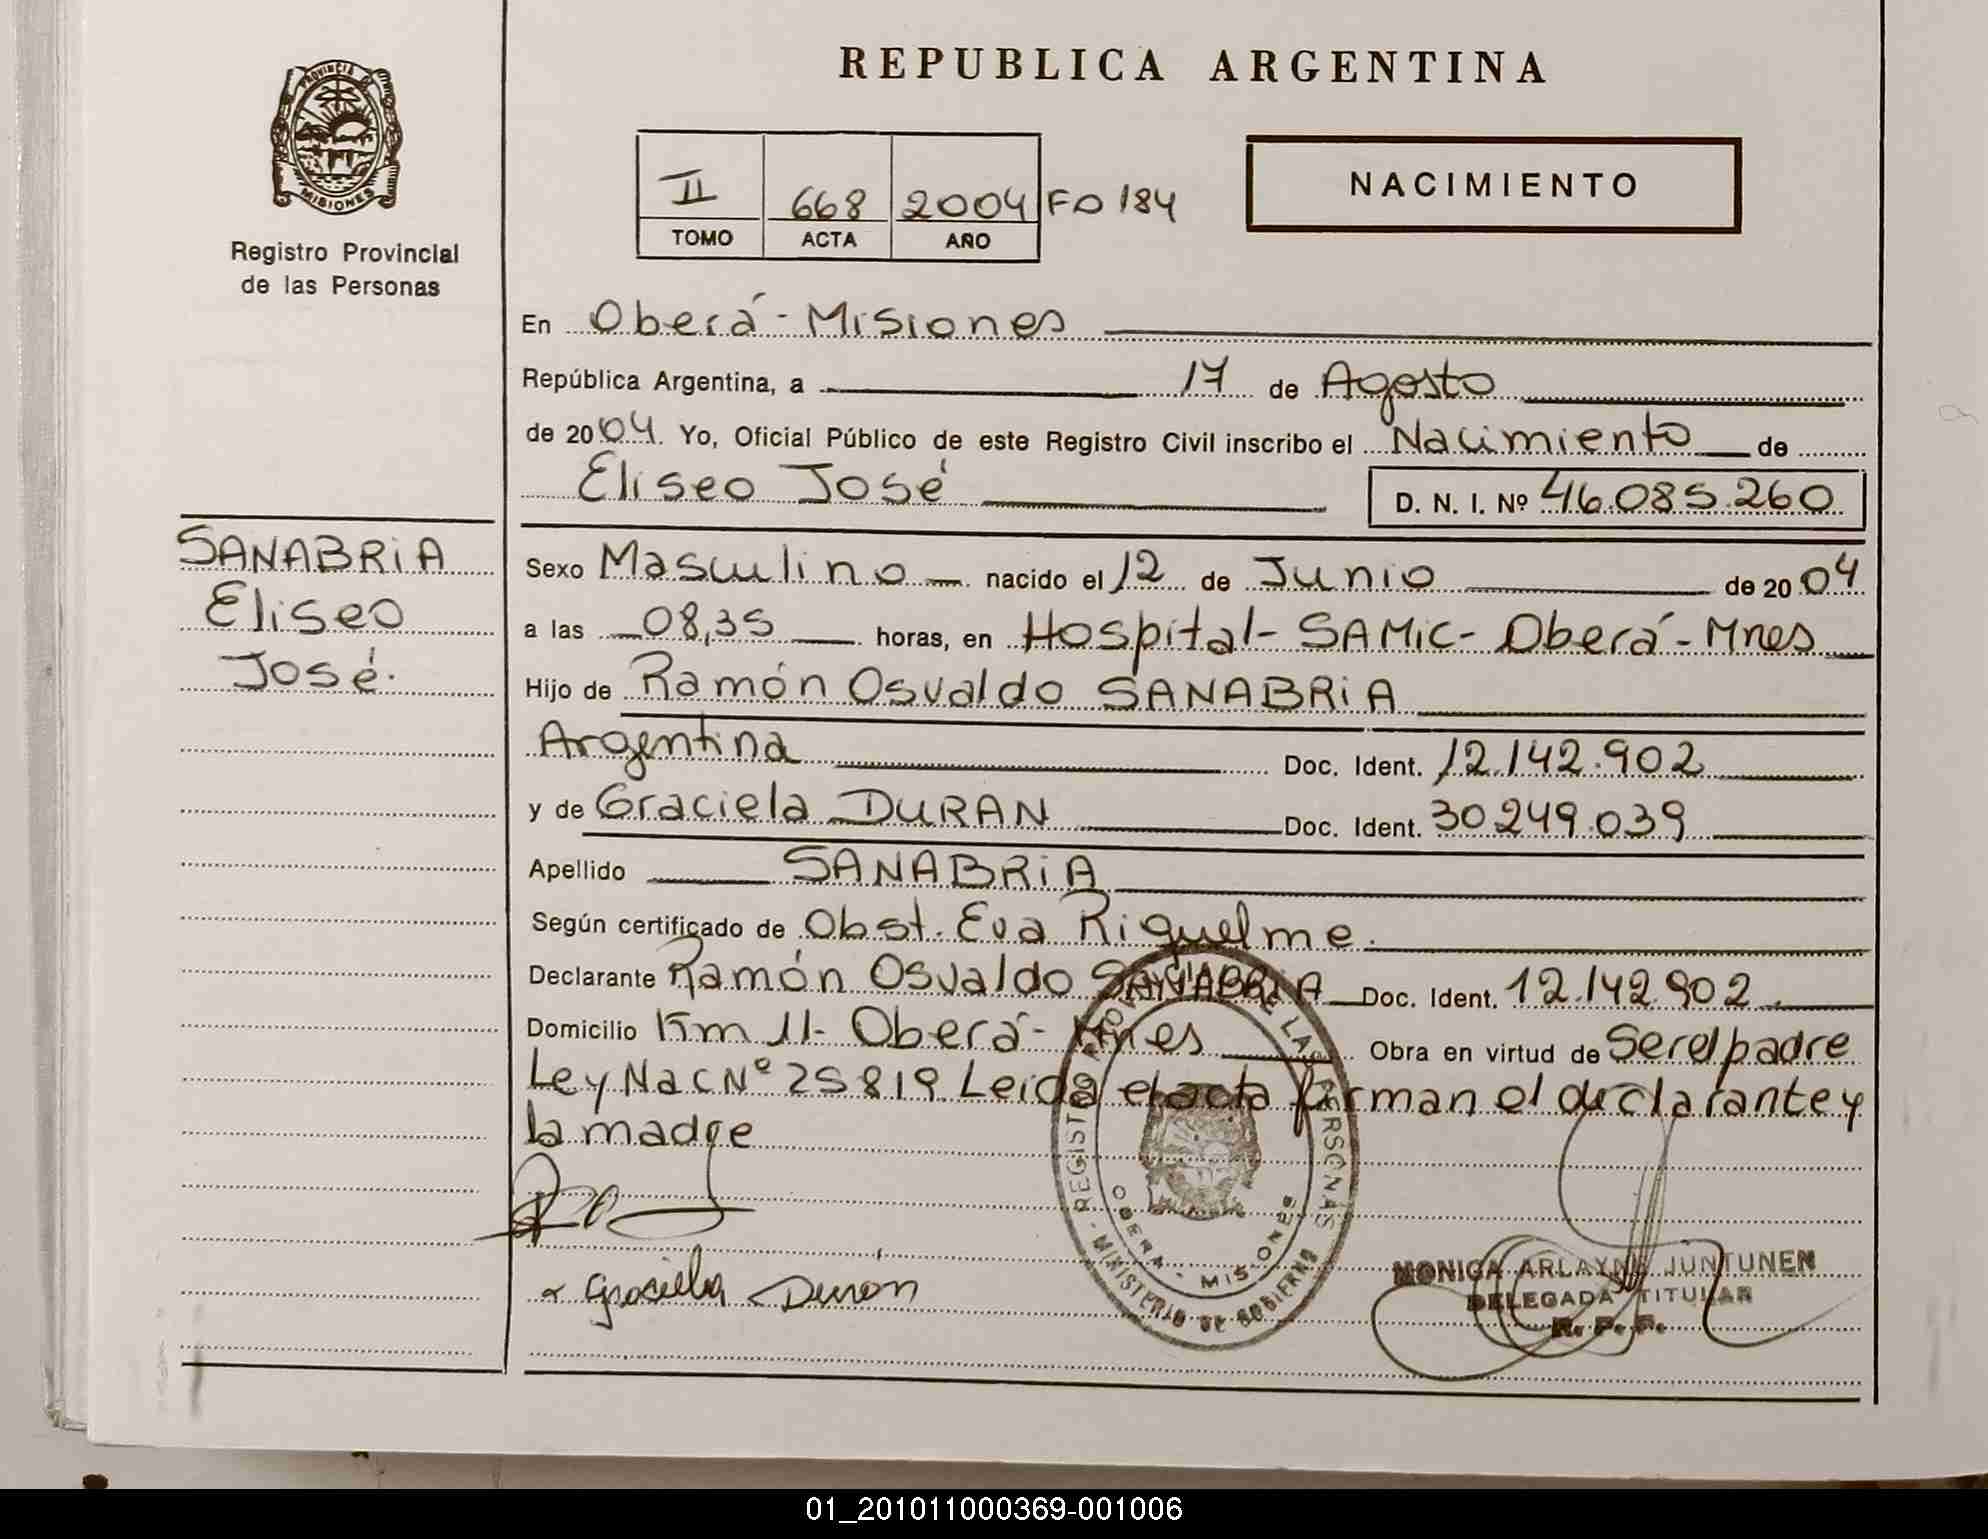 REPUBLICA ARGENTINA
PROVINCIA DE MISIONES
Registro Provincial
de las Personas
NACIMIENTO
II 668 2004 Fo 184
TOMO ACTA AÑO
En Oberá - Misiones
República Argentina, a 17 de Agosto
de 2004. Yo, Oficial Público de este Registro Civil inscribo el Nacimiento de
Eliseo José D. N. I. Nº 46.085.260
SANABRIA
Eliseo
José.
Sexo Masculino nacido el 12 de Junio de 2004
a las 08,35 horas, en Hospital - SAMiC - Oberá - Mnes
Hijo de Ramón Osvaldo SANABRiA
Argentina Doc. Ident. 12.142.902
y de Graciela DURAN Doc. Ident. 30249.039
Apellido SANABRiA
Según certificado de Obst. Eva Riquelme.
Declarante Ramón Osvaldo SANABRiA Doc. Ident. 12.142.902
Domicilio Km 11 - Oberá - Mnes Obra en virtud de Ser el padre
Ley Nac Nº 25819 Leida el acta firman el declarante y
la madre
Graciela Duron
REGISTRO PROVINCIAL DE LAS PERSONAS
MINISTERIO DE GOBIERNO
OBERA - MISIONES
MONICA ARLAYNE JUNTUNEN
DELEGADA TITULAR
R. P. P.
01_201011000369-001006